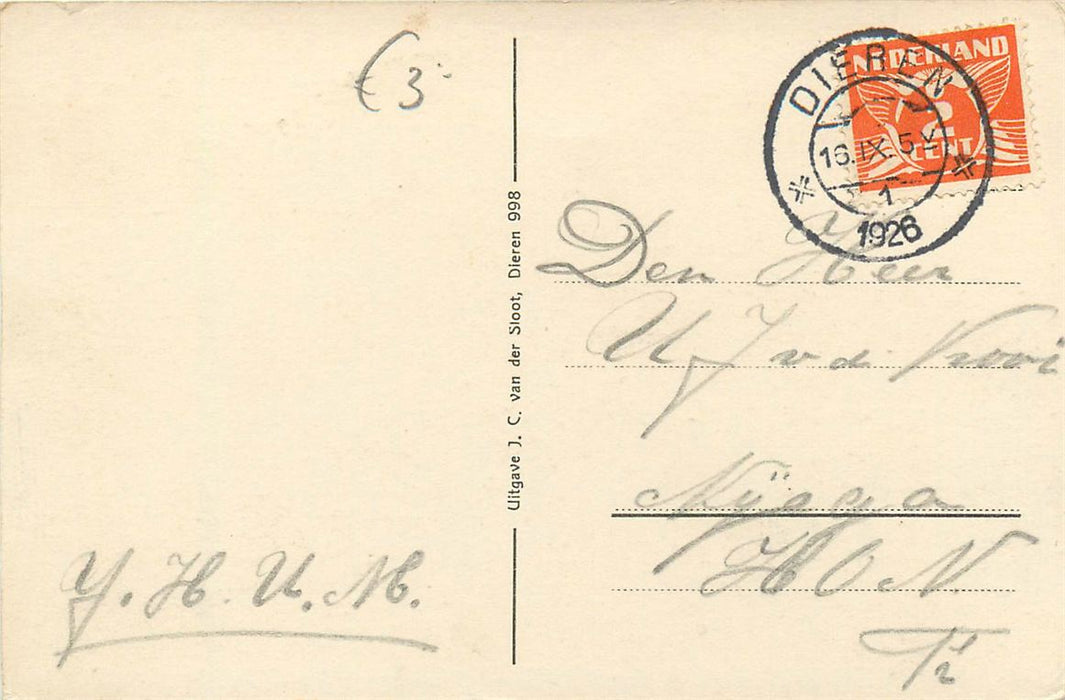 € 3-
NEDERLAND
2
CENT
DIEREN
16.IX.5V
1
1926
Uitgave J. C. van der Sloot, Dieren 998
Den Heer
U J v d
Nijega
H O N
Y. H. U. M.